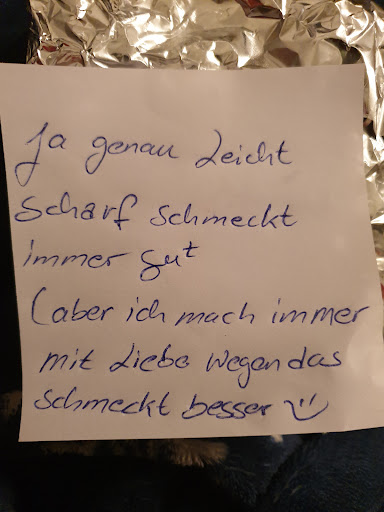 Ja genau Leicht
scharf schmeckt
immer gut
(aber ich mach immer
mit Liebe wegen das
schmeckt besser